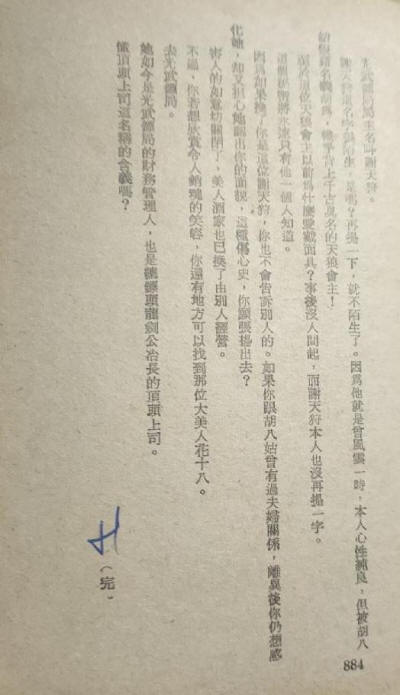 光武鏢局局主名叫謝天狩。
謝天狩這名字很陌生，是嗎？再提一下，就不陌生了。因為他就是曾風雲一時，本人心性純良，但被胡八
千古萬名的天狼會主！
這位天狼會主以前為什麼要戴面具？事後沒人問起，而謝天狩本人也沒再提一字。
這個祕密將永遠只有他一個人知道。
因為如果換了你是這位謝天狩，你也不會告訴別人的。如果你跟胡八姑曾有過夫婦關係，離異後你仍想感
化她，却又担心她認出你的面貌，這種傷心史，你願張揚出去？
害人的如意坊關閉了，美人酒家也已換了由別人經營。
不過，你若想欣賞令人銷魂的笑容，你還有地方可以找到那位大美人花十八。
去光武鏢局。
她如今是光武鏢局的財務管理人，也是總鏢頭龍劍公冶長的頂頭上司。
懂頂頭上司這名稱的含義嗎？
（完）
884